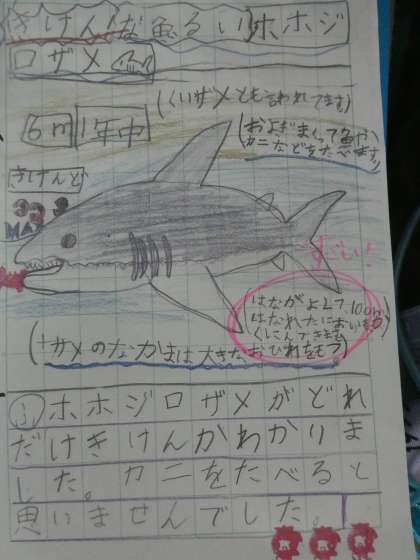 きけんな魚るいホホジ
ロザメ
(くいザメとも言われてます)
6m
1年中
およぎまくって魚や
カニなどをたべます
きけんど
MAX
すごい!
はながよくて100m
はなれたにおいもか
くにんできます
(サメのなかまは大きなおひれをもつ)
ふホホジロザメがどれ
だけきけんかわかりま
した。カニをたべると
思いませんでした。